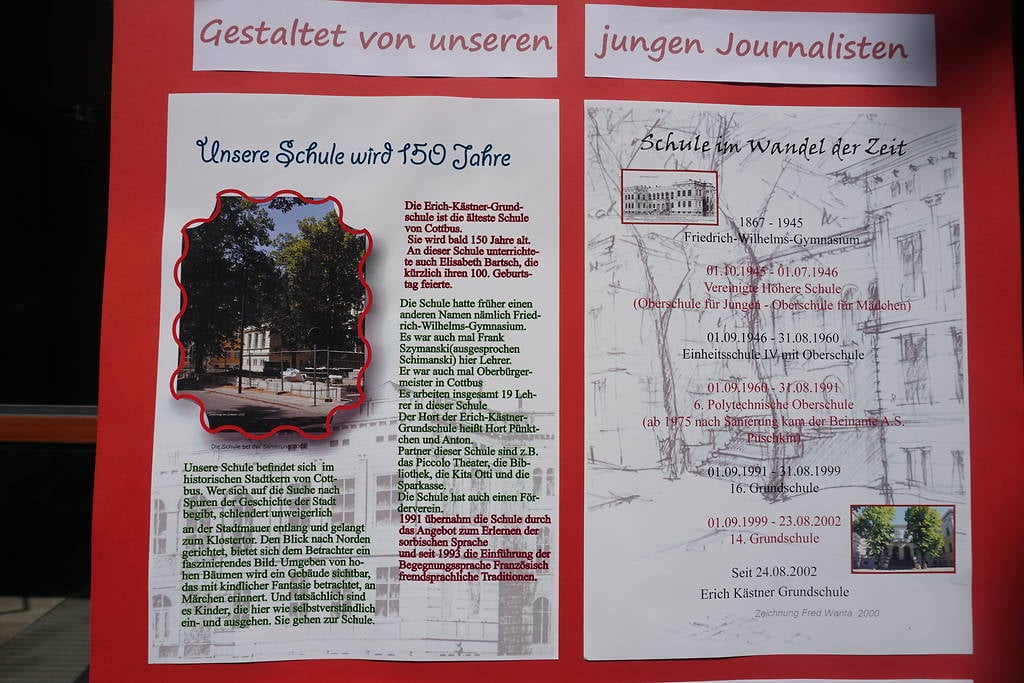 Gestaltet von unseren jungen Journalisten
Unsere Schule wird 150 Jahre
Die Erich-Kästner-Grund-
schule ist die älteste Schule
von Cottbus.
Sie wird bald 150 Jahre alt.
An dieser Schule unterrichte-
te auch Elisabeth Bartsch, die
kürzlich ihren 100. Geburts-
tag feierte.
Die Schule hatte früher einen
anderen Namen nämlich Fried-
rich-Wilhelms-Gymnasium.
Es war auch mal Frank
Szymanski(ausgesprochen
Schimanski) hier Lehrer.
Er war auch mal Oberbürger-
meister in Cottbus
Es arbeiten insgesamt 19 Leh-
rer in dieser Schule
Der Hort der Erich-Kästner-
Grundschule heißt Hort Pünkt-
chen und Anton.
Partner dieser Schule sind z.B.
das Piccolo Theater, die Bib-
liothek, die Kita Otti und die
Sparkasse.
Die Schule hat auch einen För-
derverein.
1991 übernahm die Schule durch
das Angebot zum Erlernen der
sorbischen Sprache
und seit 1993 die Einführung der
Begegnungssprache Französisch
fremdsprachliche Traditionen.
Die Schule bei der Sanierung 2002
Unsere Schule befindet sich im
historischen Stadtkern von Cott-
bus. Wer sich auf die Suche nach
Spuren der Geschichte der Stadt
begibt, schlendert unweigerlich
an der Stadtmauer entlang und gelangt
zum Klostertor. Den Blick nach Norden
gerichtet, bietet sich dem Betrachter ein
faszinierendes Bild. Umgeben von ho-
hen Bäumen wird ein Gebäude sichtbar,
das mit kindlicher Fantasie betrachtet, an
Märchen erinnert. Und tatsächlich sind
es Kinder, die hier wie selbstverständlich
ein- und ausgehen. Sie gehen zur Schule.
Schule im Wandel der Zeit
1867 - 1945
Friedrich-Wilhelms-Gymnasium
01.10.1945 - 01.07.1946
Vereinigte Höhere Schule
(Oberschule für Jungen - Oberschule für Mädchen)
01.09.1946 - 31.08.1960
Einheitsschule IV mit Oberschule
01.09.1960 - 31.08.1991
6. Polytechnische Oberschule
(ab 1975 nach Sanierung kam der Beiname A.S.
Puschkin)
01.09.1991 - 31.08.1999
16. Grundschule
01.09.1999 - 23.08.2002
14. Grundschule
Seit 24.08.2002
Erich Kästner Grundschule
Zeichnung Fred Wanta 2000